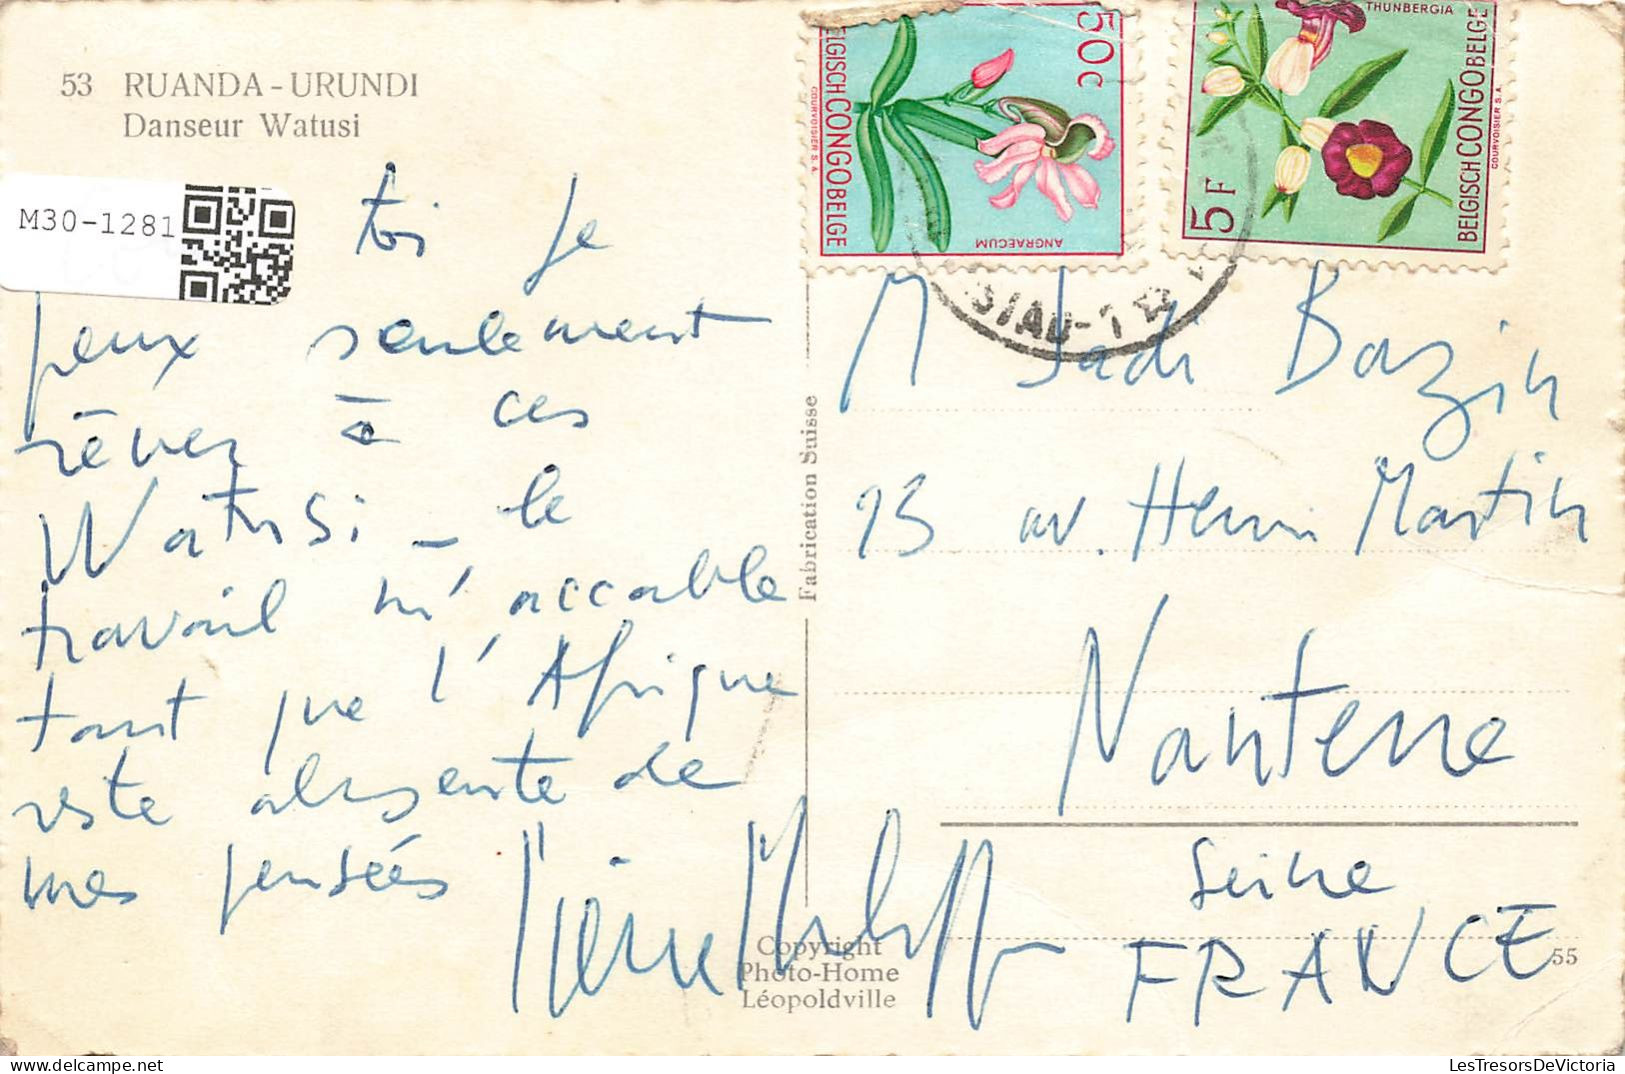 53 RUANDA - URUNDI
Danseur Watusi
M30-1281
toi je
peux seulement
rêver à ces
Watusi - le
travail m'accable
tant que l'Afrique
reste absente de
mes pensées
Pierre
Fabrication Suisse
Copyright
Photo-Home
Léopoldville
50 C
BELGISCH CONGO BELGE
COURVOISIER S.A.
ANGRAECUM
THUNBERGIA
5 F
BELGISCH CONGO BELGE
COURVOISIER S.A.
M Sadi Bazin
13 av. Henri Martin
Nanterre
Seine
FRANCE
55
LesTresorsDeVictoria